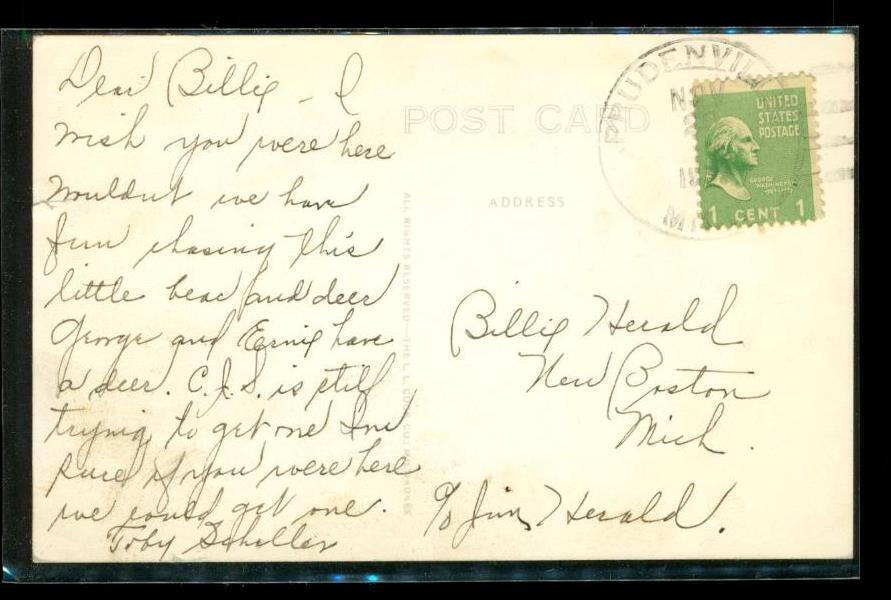 Dear Billie - I
wish you were here
wouldnt we have
fun chasing this
little bear and deer
George and Ernie have
a deer. C.J.S. is still
trying to get one Im
sure if you were here
we could get one.
Toby Scheller
POST CARD
ADDRESS
ALL RIGHTS RESERVED—THE L. L. COOK CO.
PRUDENVILLE
NOV
UNITED
STATES
POSTAGE
GEORGE
WASHINGTON
1 CENT 1
Billie Herald
New Boston
Mich.
c/o Jim Herald.